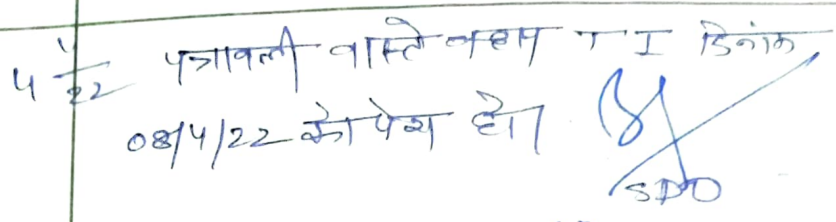 4/4/22 पत्रावली वास्ते बहस T I दिनांक
08/4/22 को पेश हो।
SDO